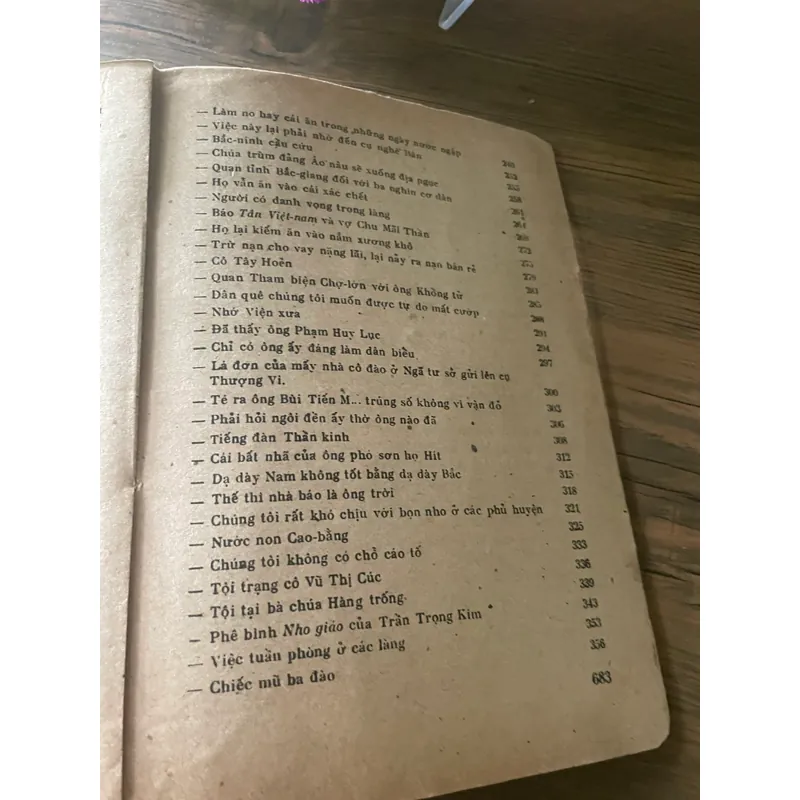 — Làm no hay cái ăn trong những ngày nước ngập 248
— Việc này lại phải nhờ đến cụ nghè 252
— Bắc-ninh cầu cứu 255
— Chúa trùm đảng Áo nâu sẽ xuống địa ngục 258
— Quan tỉnh Bắc-giang đối với ba nghìn cơ dân 261
— Họ vẫn ăn vào cái xác chết 264
— Người có danh vọng trong làng 269
— Báo Tân Việt-nam và vợ Chu Mãi Thần 273
— Họ lại kiếm ăn vào nắm xương khô
— Trừ nạn cho vay nặng lãi, lại nảy ra nạn bán rẻ 279
— Cô Tây Hoẻn
— Quan Tham biện Chợ-lớn với ông Khổng tử 285
— Dân quê chúng tôi muốn được tự do mất cướp 288
— Nhớ Viện xưa 291
— Đã thấy ông Phạm Huy Lục 294
— Chỉ có ông ấy đáng làm dân biểu 297
— Lá đơn của mấy nhà cô đào ở Ngã tư sở gửi lên cụ
Thượng Vi. 300
— Té ra ông Bùi Tiến M... trúng số không vì vận đỏ 303
— Phải hỏi ngôi đền ấy thờ ông nào đã 306
— Tiếng đàn Thần kinh 308
— Cái bất nhã của ông phó sơn họ Hít 312
— Dạ dày Nam không tốt bằng dạ dày Bắc 315
— Thế thì nhà báo là ông trời 318
— Chúng tôi rất khó chịu với bọn nho ở các phủ huyện 321
— Nước non Cao-bằng 325
— Chúng tôi không có chỗ cáo tố 333
— Tội trạng cô Vũ Thị Cúc 336
— Tội tại bà chúa Hàng trống. 339
— Phê bình Nho giáo của Trần Trọng Kim 343
— Việc tuần phòng ở các làng 353
— Chiếc mũ ba đào 356
683